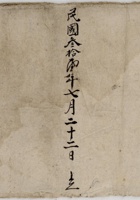 民國叁拾肆年七月二十二日 立